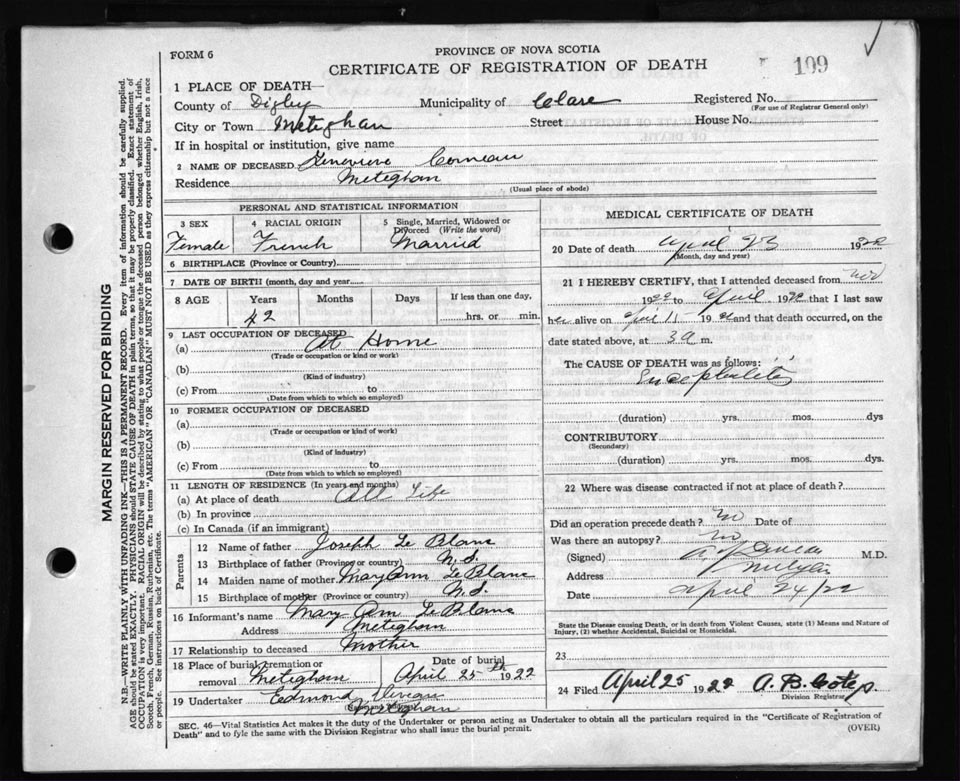 FORM 6
PROVINCE OF NOVA SCOTIA
CERTIFICATE OF REGISTRATION OF DEATH
199
1 PLACE OF DEATH—
County of Digby Municipality of Clare Registered No.
(For use of Registrar General only)
City or Town Meteghan Street House No.
If in hospital or institution, give name
2 NAME OF DECEASED Genevieve Comeau
Residence Meteghan
(Usual place of abode)
PERSONAL AND STATISTICAL INFORMATION
3 SEX 4 RACIAL ORIGIN 5 Single, Married, Widowed or Divorced (Write the word)
Female French Married
6 BIRTHPLACE (Province or Country)
7 DATE OF BIRTH (month, day and year)
8 AGE Years Months Days If less than one day,
42 hrs. or min.
9 LAST OCCUPATION OF DECEASED
(a) At Home
(Trade or occupation or kind or work)
(b)
(Kind of industry)
(c) From to
(Date from which to which so employed)
10 FORMER OCCUPATION OF DECEASED
(a)
(Trade or occupation or kind of work)
(b)
(Kind of industry)
(c) From to
(Date from which to which so employed)
11 LENGTH OF RESIDENCE (In years and months)
(a) At place of death All Life
(b) In province
(c) In Canada (if an immigrant)
Parents
12 Name of father Joseph Le Blanc
13 Birthplace of father (Province or country) N.S.
14 Maiden name of mother Mary Ann Le Blanc
15 Birthplace of mother (Province or country) N.S.
16 Informant's name Mary Ann Le Blanc
Address Meteghan
17 Relationship to deceased Mother
18 Place of burial, cremation or removal Meteghan Date of burial April 25th 1922
19 Undertaker Edmond
Meteghan
MEDICAL CERTIFICATE OF DEATH
20 Date of death April 23 1922
(Month, day and year)
21 I HEREBY CERTIFY, that I attended deceased from Nov
1922 to April 1922 that I last saw
her alive on April 11 1922 and that death occurred, on
date stated above, at 3 a m.
The CAUSE OF DEATH was as follows:
Encephalitis
(duration) yrs. mos. dys
CONTRIBUTORY
(Secondary)
(duration) yrs. mos. dys.
22 Where was disease contracted if not at place of death?
Did an operation precede death? no Date of
Was there an autopsy? no
(Signed) M.D.
Address
Date April 24/22
State the Disease causing Death, or in death from Violent Causes, state (1) Means and Nature of Injury, (2) whether Accidental, Suicidal or Homicidal.
23
24 Filed April 25 1922 A. B.
Division Registrar
SEC. 46—Vital Statistics Act makes it the duty of the Undertaker or person acting as Undertaker to obtain all the particulars required in the "Certificate of Registration of
Death" and to fyle the same with the Division Registrar who shall issue the burial permit. (OVER)
MARGIN RESERVED FOR BINDING
N.B.—WRITE PLAINLY WITH UNFADING INK—THIS IS A PERMANENT RECORD. Every item of information should be carefully supplied.
AGE should be stated EXACTLY. PHYSICIANS should STATE CAUSE OF DEATH in plain terms, so that it may be properly classified. Exact statement of
OCCUPATION is very important. RACIAL ORIGIN will be described by stating to what people or tongue the deceased person belonged whether English, Irish,
Scotch, French, German, Russian, Ruthenian, etc. The terms "AMERICAN" OR "CANADIAN" MUST NOT BE USED as they express citizenship but not a race
See instructions on back of Certificate.